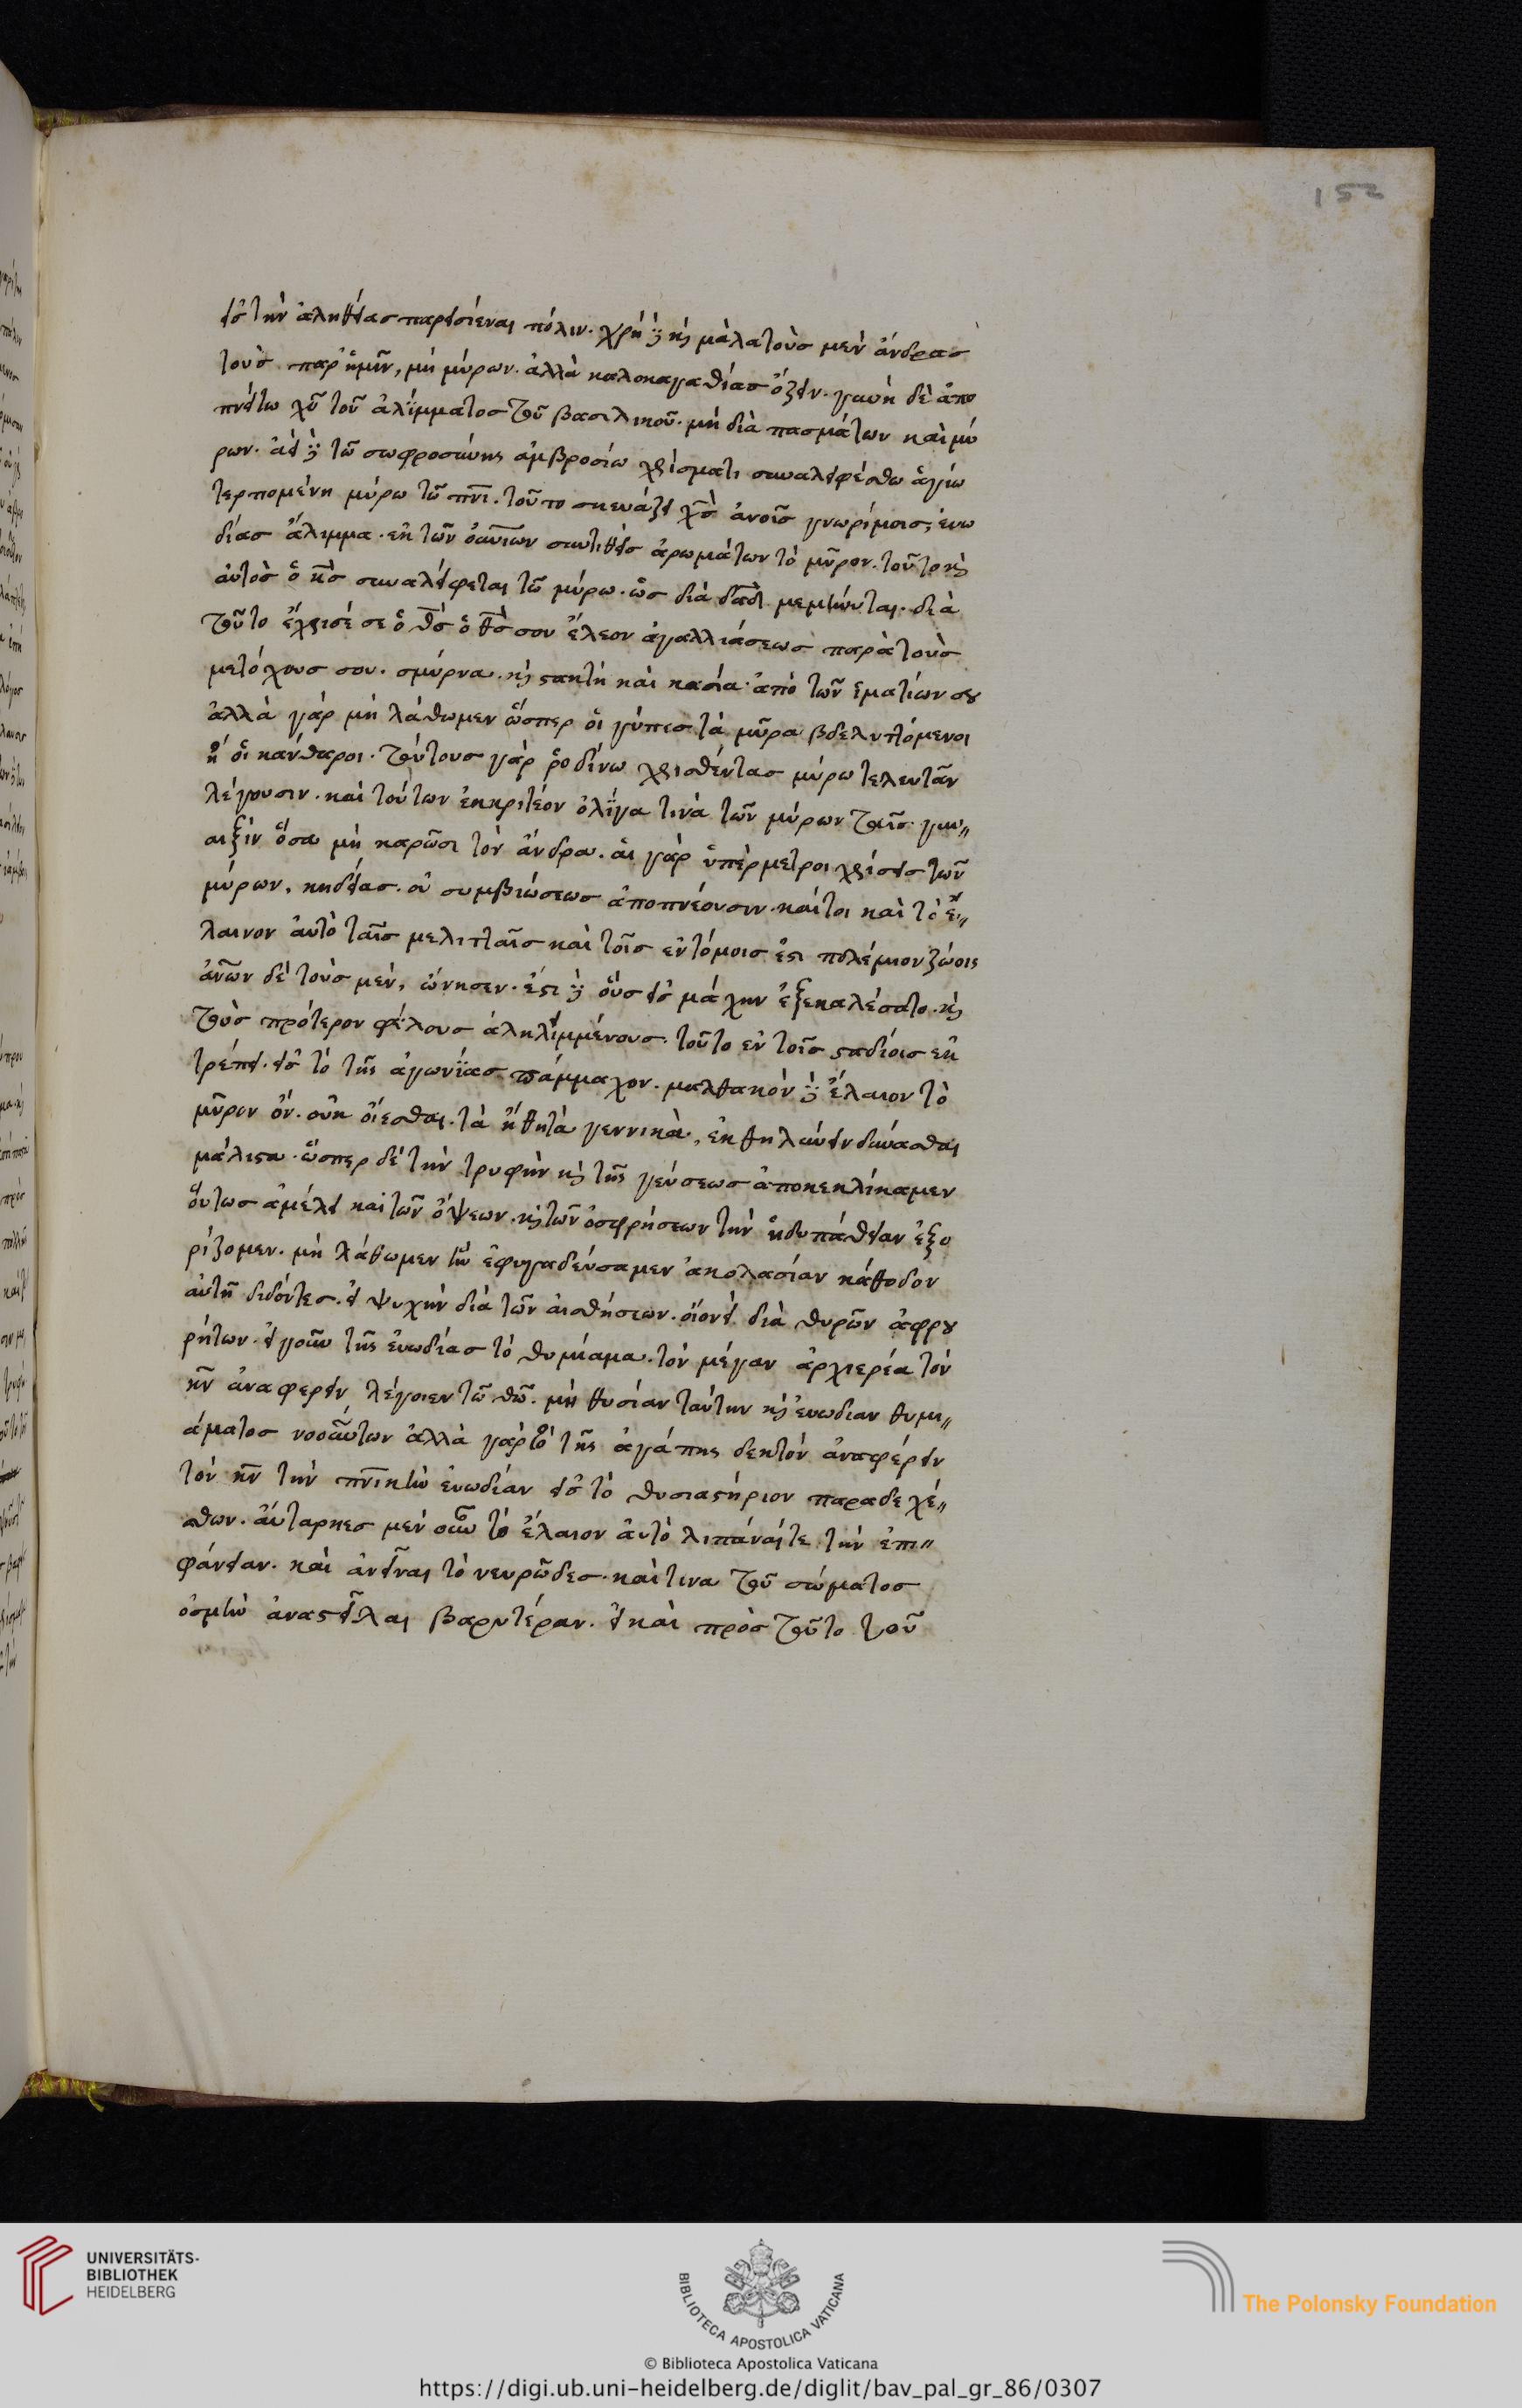 152
εἰς τὴν ἀληθείας παρεισιέναι πόλιν. χρὴ δὲ καὶ μάλα τοὺς μὲν ἄνδρας
τοὺς παρ' ἡμῖν, μὴ μύρων. ἀλλὰ καλοκαγαθίας ὄζειν. γυνὴ δὲ ἀπο
πνείτω χυ τοῦ ἀλίμματος τοῦ βασιλικοῦ. μὴ διὰ πασμάτων καὶ μύ
ρων. ἀεὶ δὲ τῶ σωφροσύνης ἀμβροσίω χρίσματι συναλειφέσθω ἁγίω
τερπομένη μύρω τῶ πνι. τοῦτο σκευάζει χς ἀνοις γνωρίμοις, εὐω
δίας ἄλιμμα. ἐκ τῶν οὐνίων συντιθεὶς ἀρωμάτων τὸ μῦρον. τοῦτο καὶ
αὐτὸς ὁ κς συναλείφεται τῶ μύρω. ὡς διὰ δαδ μεμήνυται. διὰ
τοῦτο ἔχρισέ σε ὁ θς ὁ θς σου ἔλεον ἀγαλλιάσεως παρὰ τοὺς
μετόχους σου. σμύρνα. καὶ στακτὴ καὶ κασία. ἀπὸ τῶν ἱματίων σου
ἀλλὰ γὰρ μὴ λάθωμεν ὥσπερ οἱ γύπες τὰ μῦρα βδελυττόμενοι
ἢ οἱ κάνθαροι. τούτους γὰρ ῥοδίνω χρισθέντας μύρω τελευτᾶν
λέγουσιν. καὶ τούτων ἐκκριτέον ὀλίγα τινὰ τῶν μύρων ταῖς γυν
αιξὶν ὅσα μὴ καρῶσι τὸν ἄνδρα. αἱ γὰρ ὑπέρμετροι χρίσεις τῶν
μύρων, κηδείας. οὐ συμβιώσεως ἀποπνέουσιν. καίτοι καὶ τὸ ἔ
λαινον αὐτὸ ταῖς μελιτταῖς καὶ τοῖς ἐντόμοις ἐστὶ πολέμιον ζώοις
ἀνων δὲ τοὺς μὲν, ὤνησεν. ἔστι δὲ οὓς εἰς μάχην ἐξεκαλέσατο. καὶ
τοὺς πρότερον φίλους ἀληλιμμένους. τοῦτο ἐν τοῖς σταδίοις ἐκ
τρέπει. εἰς τὸ τῆς ἀγωνίας πάμμαχον. μαλθακὸν δὲ ἔλαιον τὸ
μῦρον ὄν. οὐκ οἴεσθαι. τὰ ἤθη τὰ γεννικὰ, ἐκθηλύνειν δύνασθαι
μάλιστα. ὥσπερ δὲ τὴν τρυφὴν καὶ τῆς γεύσεως ἀποκεκλίκαμεν
οὕτως ἀμέλει καὶ τῶν ὄψεων. καὶ τῶν ὀσφρήσεων τὴν ἡδυπάθειαν ἐξο
ρίζομεν. μὴ λάθωμεν ἣν ἐφυγαδεύσαμεν ἀκολασίαν κάθοδον
αὐτῆ διδόντες. εἰ ψυχὴν διὰ τῶν αἰσθήσεων. οἱονεὶ διὰ θυρῶν ἀφρου
ρήτων. εἰ γοῦν τῆς εὐωδίας τὸ θυμίαμα. τὸν μέγαν ἀρχιερέα τὸν
κν ἀναφέρειν λέγοιεν τῶ θῶ. μὴ θυσίαν ταύτην καὶ εὐωδίαν θυμι
άματος νοούντων ἀλλὰ γὰρ τὸ τῆς ἀγάπης δεκτὸν ἀναφέρειν
τὸν κν τὴν πνικὴν εὐωδίαν εἰς τὸ θυσιαστήριον παραδεχέ
σθων. αὔταρκες μὲν οὖν τὸ ἔλαιον αὐτὸ λιπᾶναί τε τὴν ἐπι
φάνειαν. καὶ ἀνεῖναι τὸ νευρῶδες. καί τινα τοῦ σώματος
ὀσμὴν ἀναστεῖλαι βαρυτέραν. εἰ καὶ πρὸς τοῦτο τοῦ
UNIVERSITÄTS-
BIBLIOTHEK
HEIDELBERG
BIBLIOTECA APOSTOLICA VATICANA
The Polonsky Foundation
© Biblioteca Apostolica Vaticana
https://digi.ub.uni-heidelberg.de/diglit/bav_pal_gr_86/0307